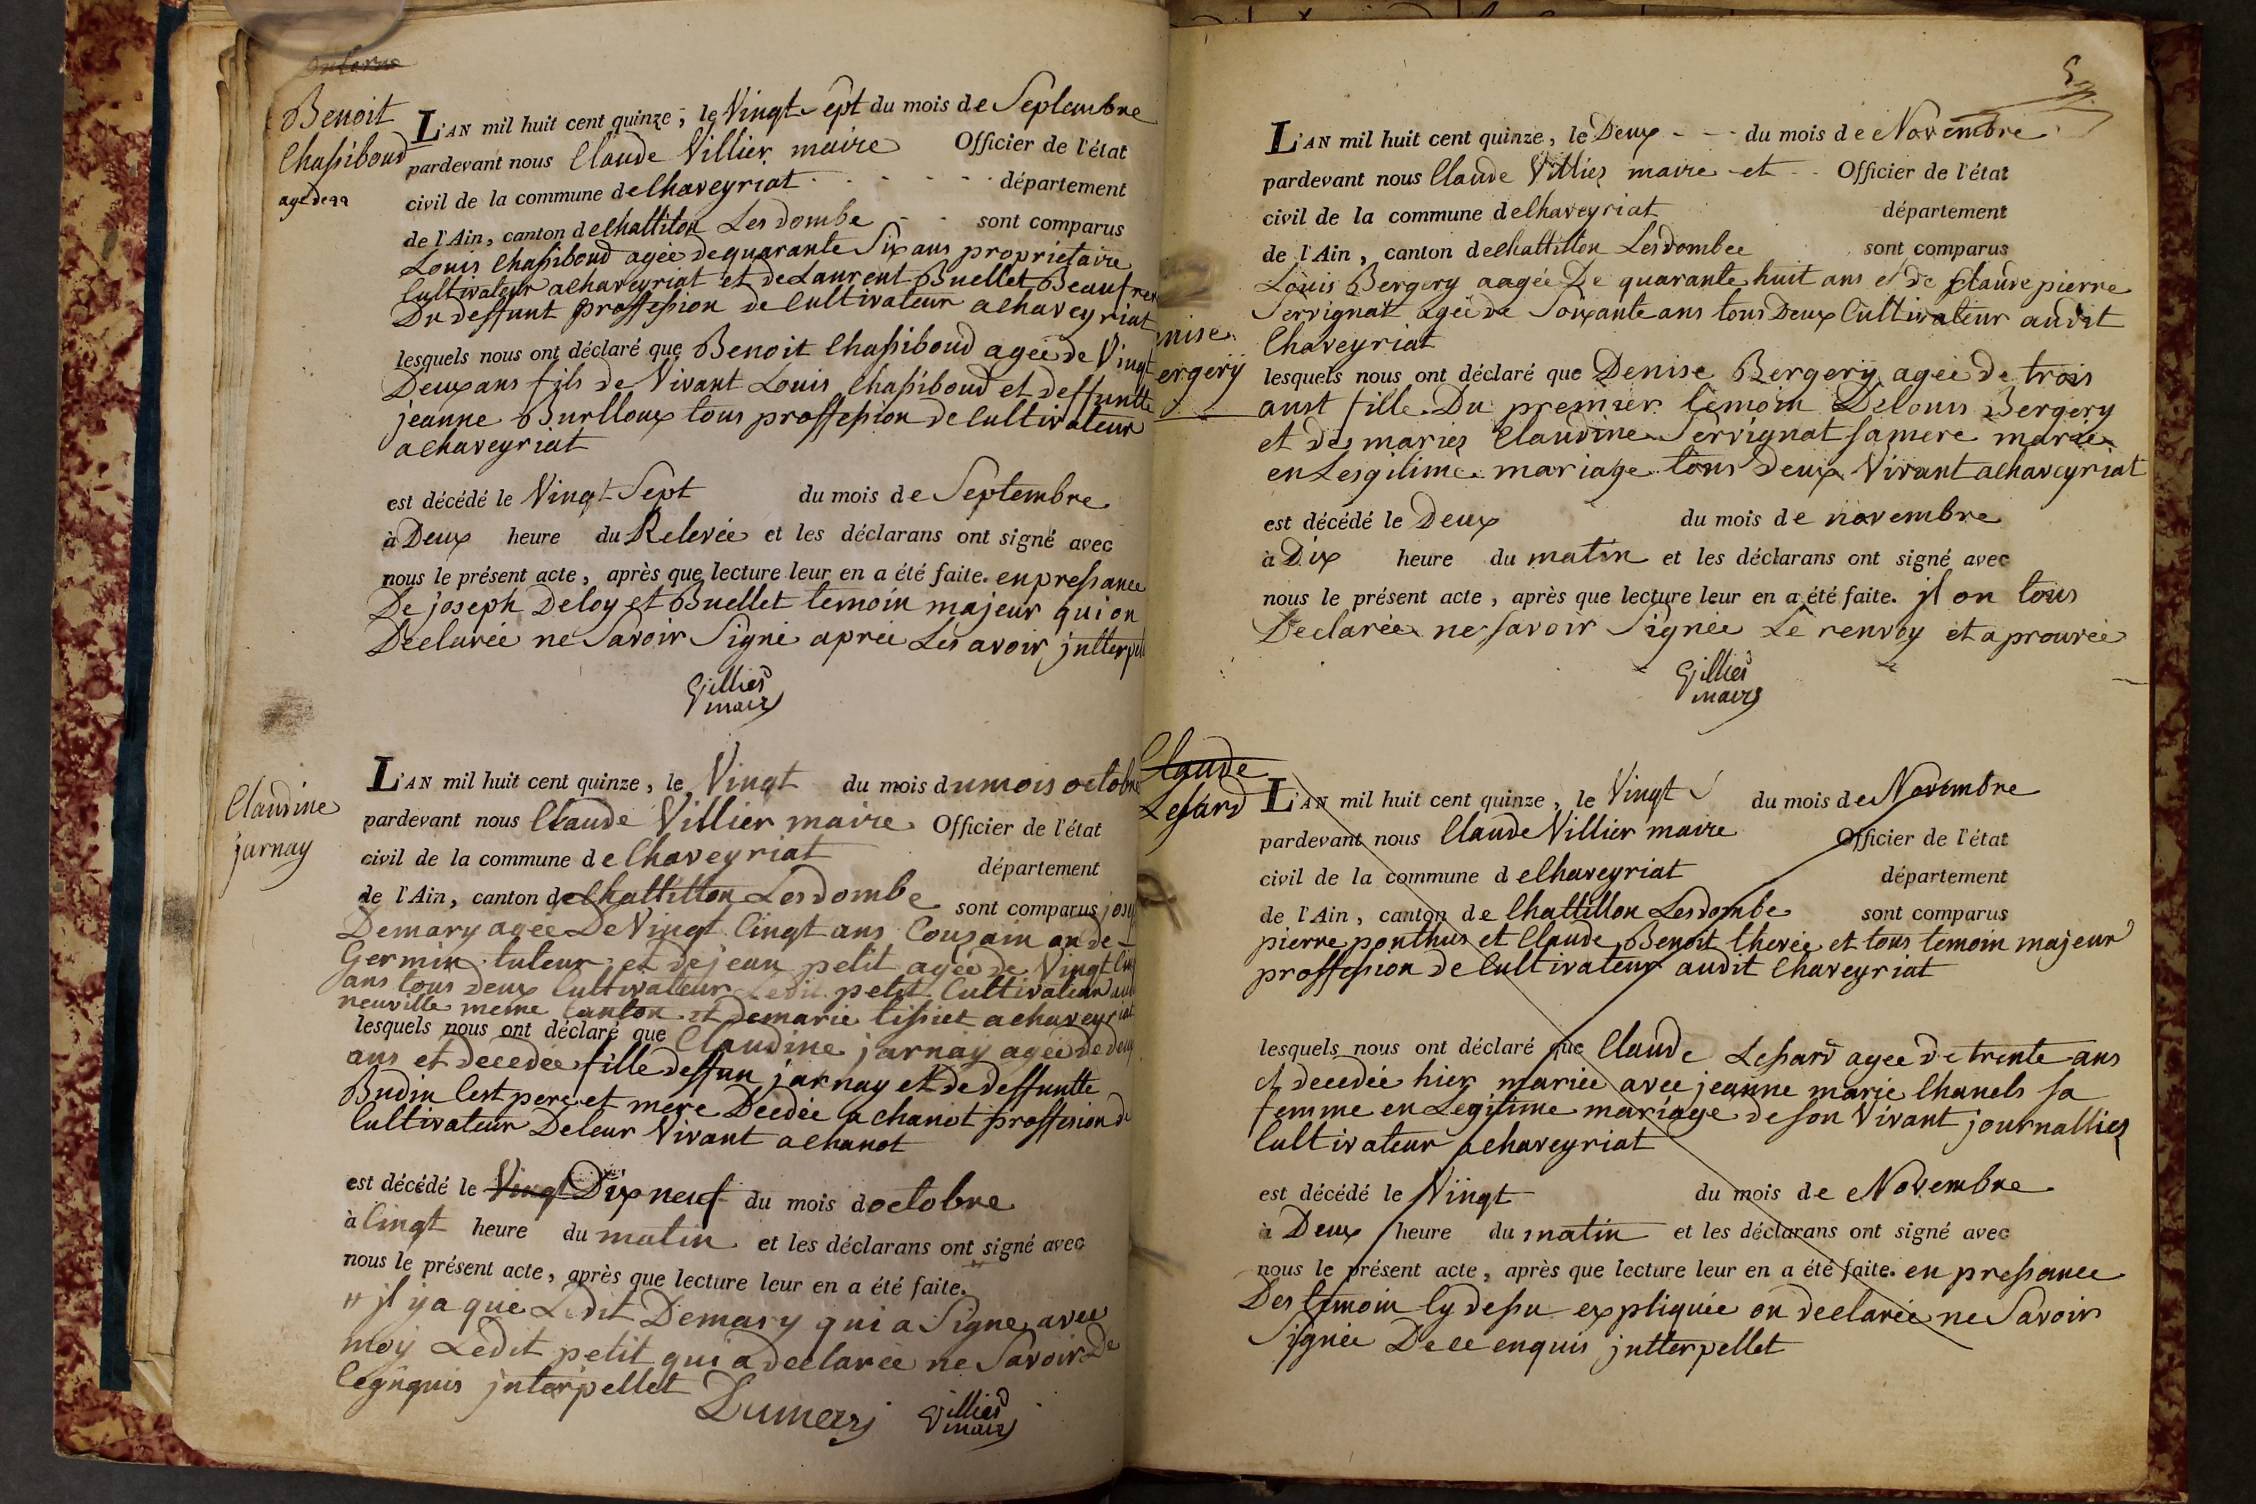 Benoit
Chassiboud
agé de 22
L'AN mil huit cent quinze, le Vingt sept du mois de Septembre
pardevant nous Claude Villier maire Officier de l'état
civil de la commune de Chaveyriat département
de l'Ain, canton de Chattillon Les dombe sont comparus
Louis Chassiboud agée de quarante Six ans propriétaire
Cultivateur a Chaveyriat et de Laurent Buellet Beaufrer
Du deffunt proffession de Cultivateur a Chaveyriat
lesquels nous ont déclaré que Benoit Chassiboud agée de Vingt
Deux ans fils de Vivant Louis Chassiboud et deffuntte
jeanne Burlloux tous proffession de Cultivateur
a Chaveyriat
est décédé le Vingt Sept du mois de Septembre
à Deux heure du Relevée et les déclarans ont signé avec
nous le présent acte, après que lecture leur en a été faite. en pressance
De joseph Deloy et Buellet temoin majeur qui on
Declarée ne Savoir Signé aprée Les avoir jntterpell
Villier
maire
Claudine
jarnay
L'AN mil huit cent quinze, le Vingt du mois du mois octobre
pardevant nous Claude Villier maire Officier de l'état
civil de la commune de Chaveyriat département
de l'Ain, canton de Chattillon Les dombe sont comparus
Demary agée De Vingt Cingt ans Couzain
Germin tuteur et de jean petit agée de Vingt
ans tous deux Cultivateur Ledit petit Cultivateur
neuville meme Canton et demarie tissiet a Chaveyriat
lesquels nous ont déclaré que Claudine jarnay agée de deux
ans et decedée fille deffun jarnay et de deffuntte
Budin Cest pere et mere Decedée a Chanot proffesion de
Cultivateur De leur Vivant a Chanot
est décédé le Vingt Dix neuf du mois d octobre
à Cingt heure du matin et les déclarans ont signé avec
nous le présent acte, après que lecture leur en a été faite.
jl y a que Ledit Demary qui a Signe avec
moy Ledit petit qui a declarée ne Savoir De
Cegnquis jnterpellet
Dumarj
Villier
maire
nise
ergerÿ
L'AN mil huit cent quinze, le Deux du mois de Novembre
pardevant nous Claude Villier maire et Officier de l'état
civil de la commune de Chaveyriat département
de l'Ain, canton de Chattillon Les dombee sont comparus
Louis Bergery aagée De quarante huit ans et de Claude pierre
Servignat agée de Soixante ans tous Deux Cultivateur audit
Chaveyriat
lesquels nous ont déclaré que Denise Bergerÿ agée de trois
anst fille Du premier temoin De Louis Bergery
et de mariez Claudine Servignat sa mere mariée
en Lesgitime mariage tous deux Vivant a Chaveyriat
est décédé le Deux du mois de novembre
à Dix heure du matin et les déclarans ont signé avec
nous le présent acte, après que lecture leur en a été faite. jl on tous
Declarée ne Savoir Signée Le renvoy et aprouvée
Villier
maire
Claude
Lessard
L'AN mil huit cent quinze, le Vingt du mois de Novembre
pardevant nous Claude Villier maire Officier de l'état
civil de la commune d e Chaveyriat département
de l'Ain, canton de Chattillon Les dombe sont comparus
pierre ponthus et Claude Benoit thevée et tous temoin majeur
proffession de Cultivateur audit Chaveyriat
lesquels nous ont déclaré que Claude Lessard agée de trente ans
et decedée hier mariée avec jeanne marie Chanels sa
femme en Legitime mariage de son Vivant journallier
Cultivateur a Chaveyriat
est décédé le Vingt du mois de Novembre
à Deux heure du matin et les déclarans ont signé avec
nous le présent acte, après que lecture leur en a été faite. en pressance
Des temoin Cy dessu expliquée on declarée ne Savoir
Signée De ce enquis jntterpellet